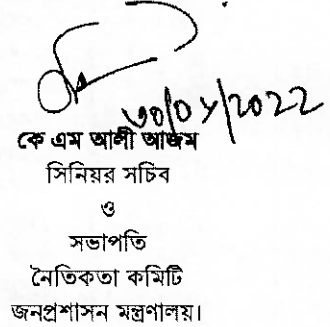 ৩০/০১/2022
কে এম আলী আজম
সিনিয়র সচিব
ও
সভাপতি
নৈতিকতা কমিটি
জনপ্রশাসন মন্ত্রণালয়।